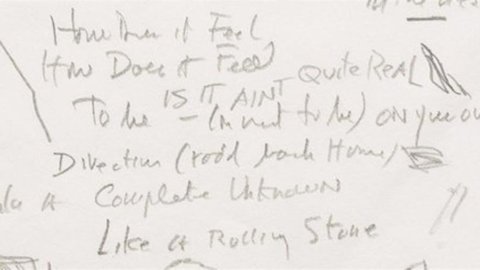 How Does it Feel
How Does it Feel QUITE REAL
IS IT AINT
To be — (meant to be) ON your ow
Direction (road back Home)
A Complete Unknown
Like A Rolling Stone